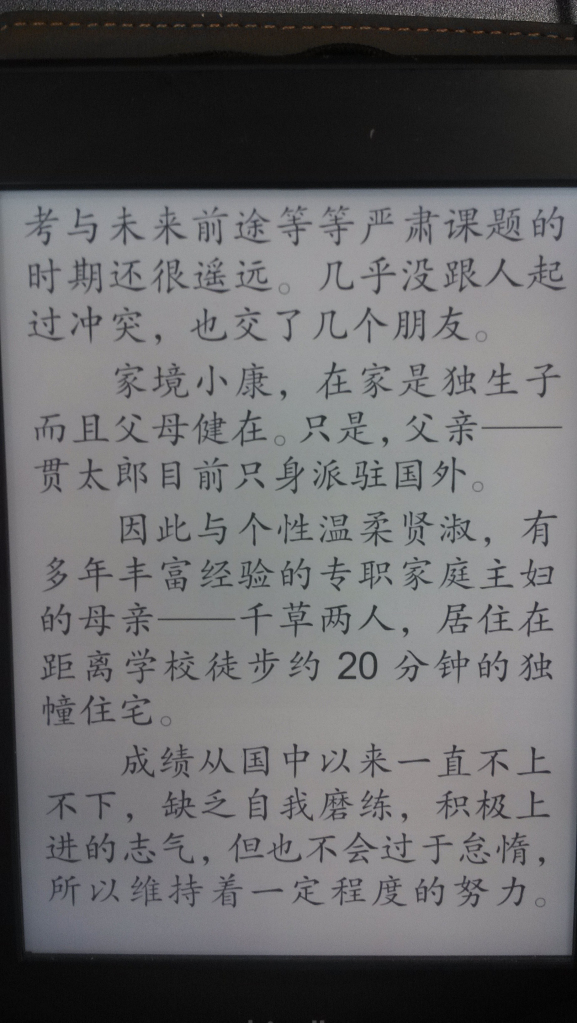 考与未来前途等等严肃课题的
时期还很遥远。几乎没跟人起
过冲突，也交了几个朋友。
家境小康，在家是独生子
而且父母健在。只是，父亲——
贯太郎目前只身派驻国外。
因此与个性温柔贤淑，有
多年丰富经验的专职家庭主妇
的母亲——千草两人，居住在
距离学校徒步约 20 分钟的独
幢住宅。
成绩从国中以来一直不上
不下，缺乏自我磨练，积极上
进的志气，但也不会过于怠惰，
所以维持着一定程度的努力。